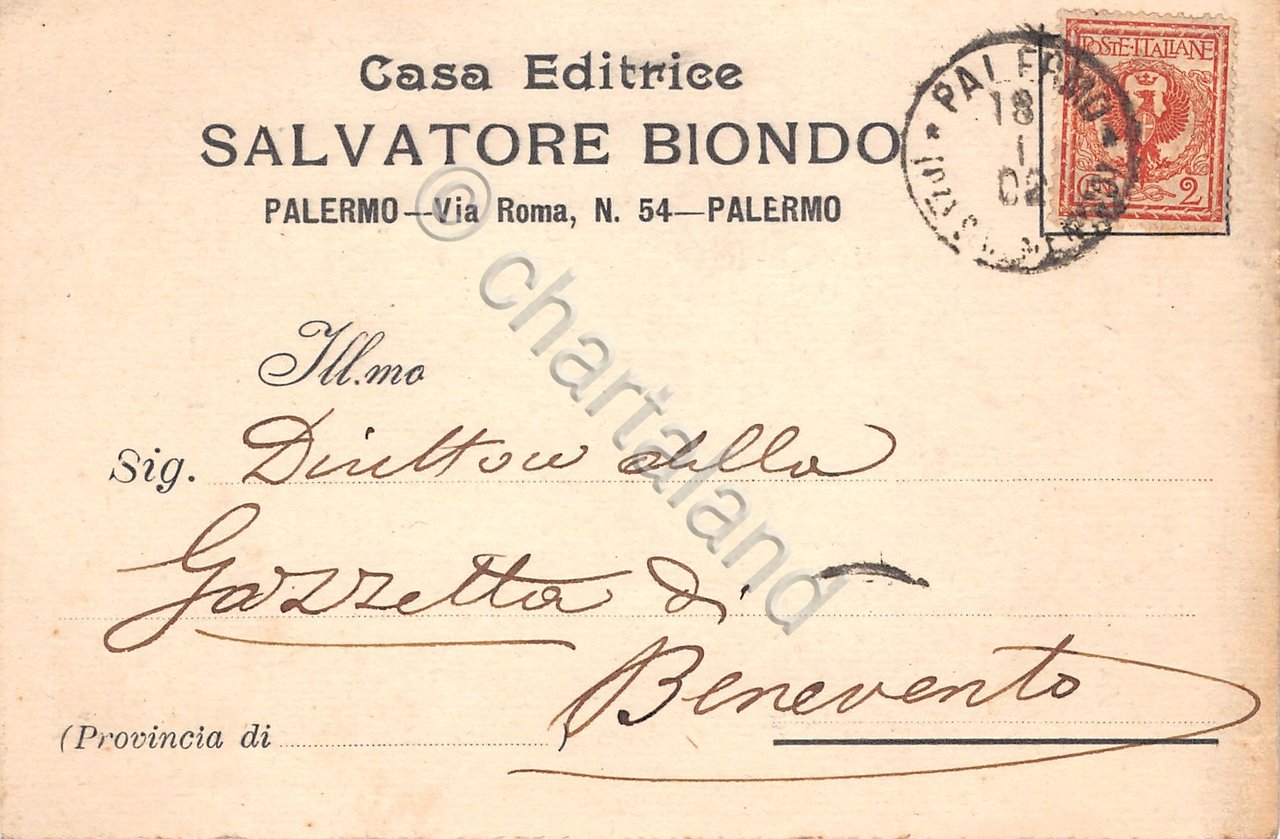 Casa Editrice
SALVATORE BIONDO
PALERMO—Via Roma, N. 54—PALERMO
POSTE·ITALIANE
2
* PALERMO *
18
1
02
Ill.mo
Sig. Direttore della
Gazzetta di
Benevento
(Provincia di )
© chartaland